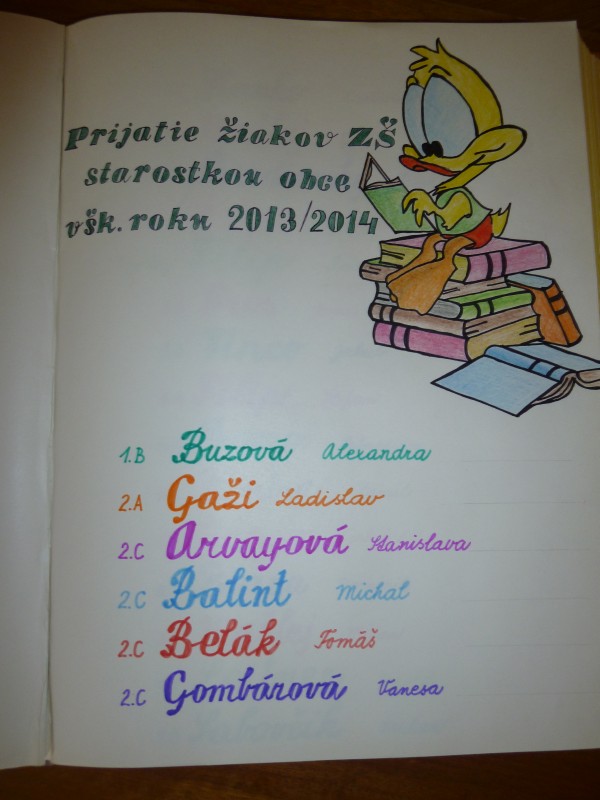 Prijatie žiakov ZŠ
starostkou obce
v šk. roku 2013/2014
1.B Buzová Alexandra
2.A Gaži Ladislav
2.C Arvayová Stanislava
2.C Balint Michal
2.C Belák Tomáš
2.C Gombárová Vanesa